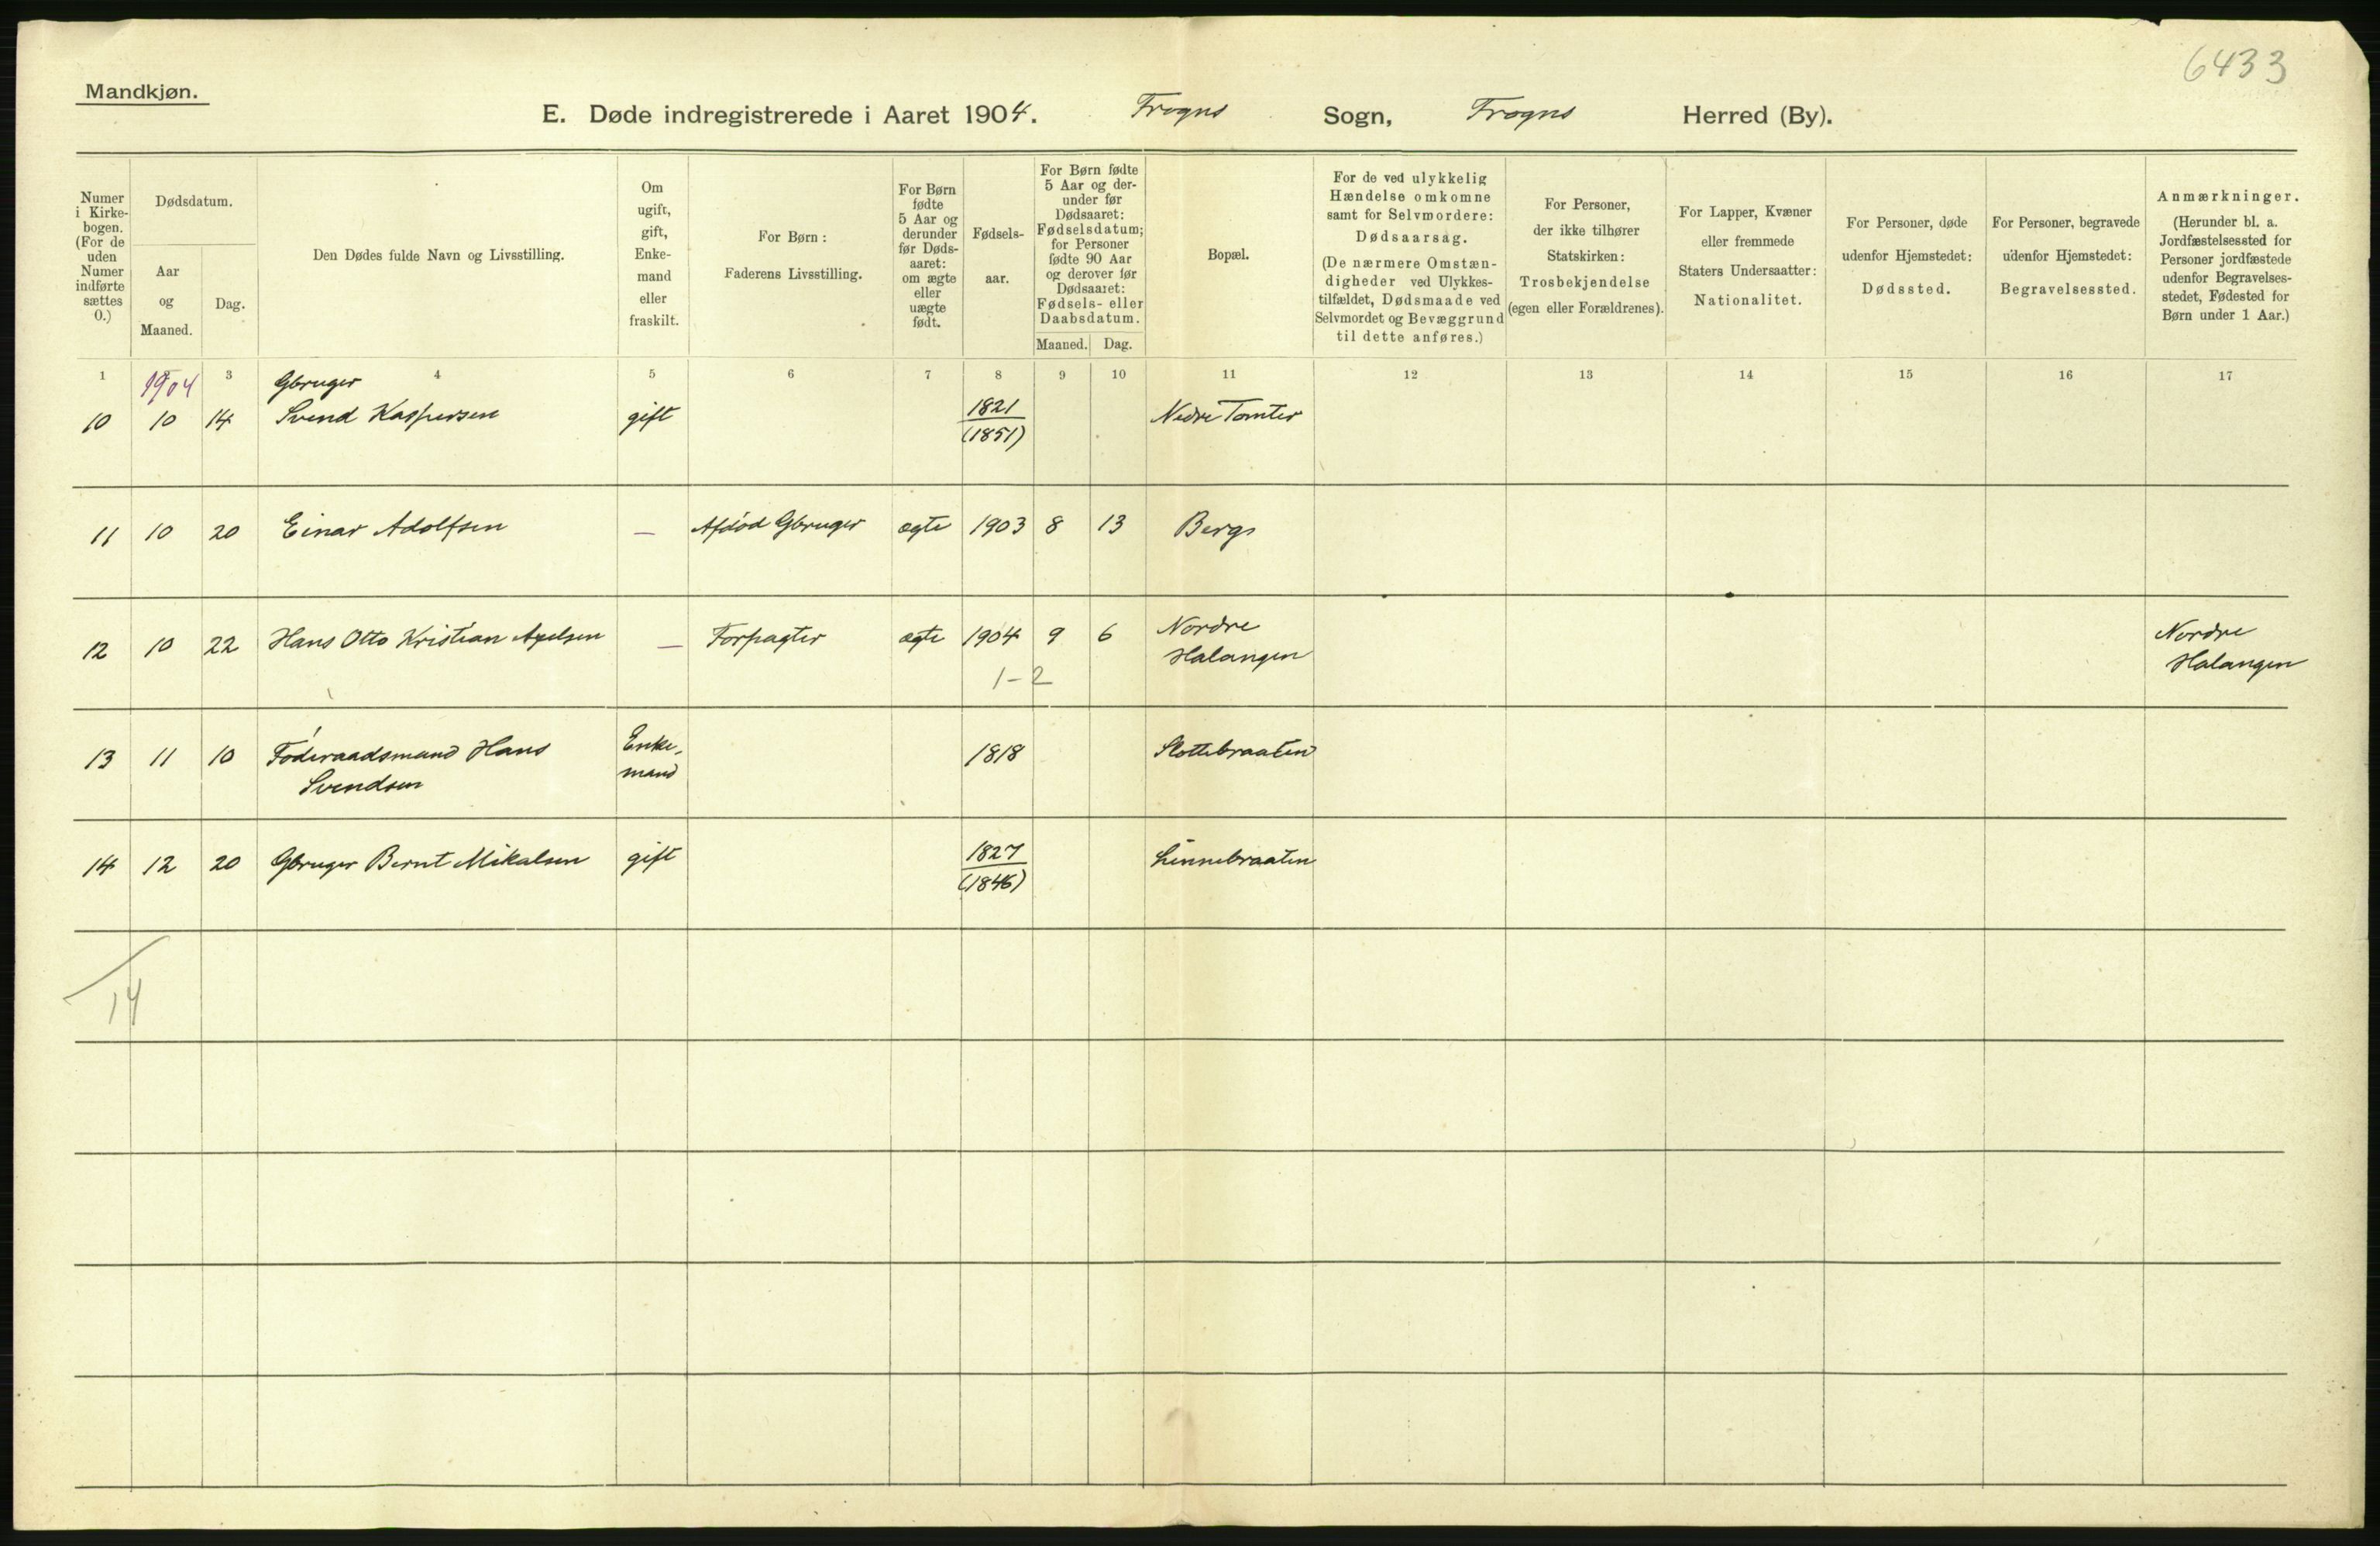 6433
Mandkjøn.
E. Døde indregistrerede i Aaret 1904. Frogns Sogn, Frogns Herred (By).
Numer i Kirke-bogen. (For de uden Numer indførte sættes 0.)
Dødsdatum.
Aar og Maaned.
Dag.
Den Dødes fulde Navn og Livsstilling.
Om ugift, gift, Enke-mand eller fraskilt.
For Børn: Faderens Livsstilling.
For Børn fødte 5 Aar og derunder før Døds-aaret: om ægte eller uægte født.
Fødsels-aar.
For Børn fødte 5 Aar og der-under før Dødsaaret: Fødselsdatum; for Personer fødte 90 Aar og derover før Dødsaaret: Fødsels- eller Daabsdatum.
Maaned. Dag.
Bopæl.
For de ved ulykkelig Hændelse omkomne samt for Selvmordere: Dødsaarsag. (De nærmere Omstæn-digheder ved Ulykkes-tilfældet, Dødsmaade ved Selvmordet og Bevæggrund til dette anføres.)
For Personer, der ikke tilhører Statskirken: Trosbekjendelse (egen eller Forældrenes).
For Lapper, Kvæner eller fremmede Staters Undersaatter: Nationalitet.
For Personer, døde udenfor Hjemstedet: Dødssted.
For Personer, begravede udenfor Hjemstedet: Begravelsessted.
Anmærkninger. (Herunder bl. a. Jordfæstelsessted for Personer jordfæstede udenfor Begravelses-stedet, Fødested for Børn under 1 Aar.)
1 3 4 5 6 7 8 9 10 11 12 13 14 15 16 17
1904 Gbruger
10 10 14 Svend Kaspersen gift 1821 Nedre Tomter
(1851)
11 10 20 Einar Adolfsen — Afdöd Gbruger ægte 1903 8 13 Berg
12 10 22 Hans Otto Kristian Axelsen — Forpagter ægte 1904 9 6 Nordre Halangen Nordre Halangen
1-2
13 11 10 Föderaadsmand Hans Enke-mand 1818 Slottebraaten
Svendsen
14 12 20 Gbruger Bernt Mikalsen gift 1827 Linnebraaten
(1846)
14